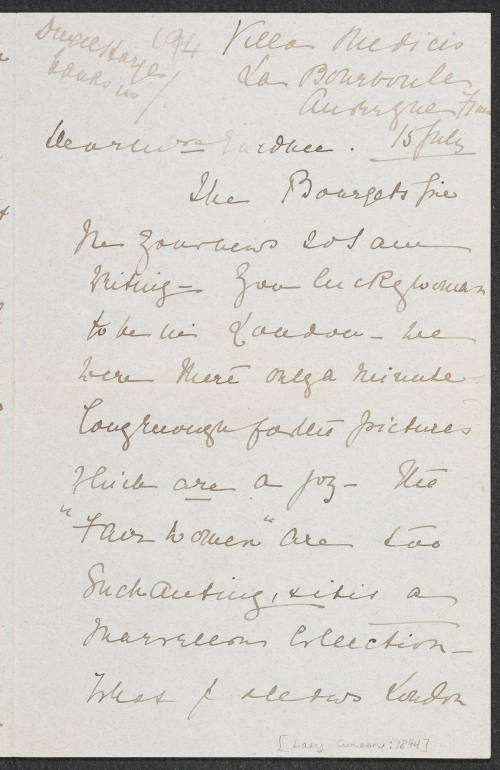 Drexel Harjes
banks us /
194
Villa Medicis
La Bourboule
Auvergne
15 July
Dear Mrs Gardner.
The Bourgets give
me your news so I am
writing - You lucky woman
to be in London - we
were there only a minute
long enough for the pictures
which are a joy - The
"Fair Women" are too
enchanting, & it is a
marvellous Collection -
What London
[Lady Curzon: 1894]